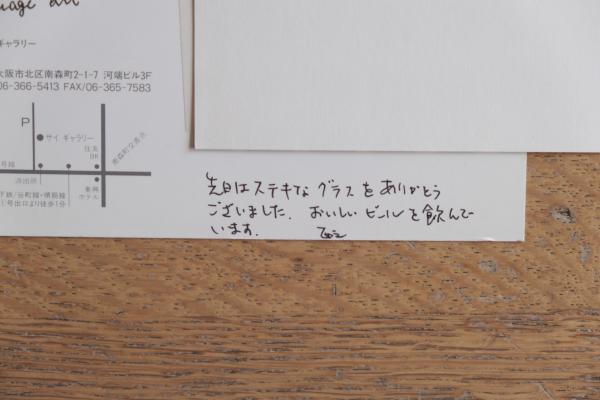 ギャラリー
大阪市北区南森町2-1-7 河端ビル3F
06-366-5413 FAX/06-365-7583
P
サイ ギャラリー
住友
BK
南森町交差点
号線
派出所
東興
ホテル
下鉄/谷町線・堺筋線
号出口より徒歩1分
先日はステキな グラスを ありがとう
ございました. おいしい ビールを飲んで
います.